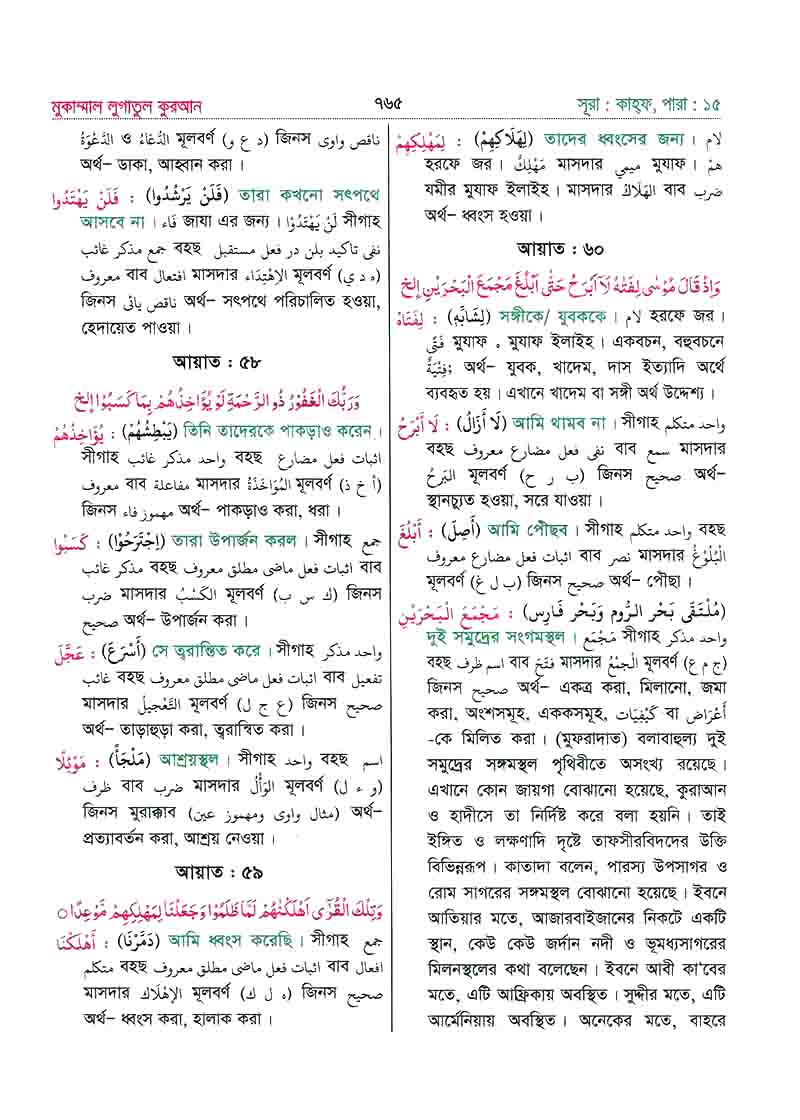 মুকাম্মাল লুগাতুল কুরআন
৭৬৫
সূরা : কাহ্ফ, পারা : ১৫
ناقص واوى জিনস (د ع و) মূলবর্ণ الدُّعَاءُ ও الدَّعْوَةُ
অর্থ– ডাকা, আহ্বান করা।
فَلَنْ يَهْتَدُوا : (فَلَنْ يَرْشُدُوا) তারা কখনো সৎপথে
আসবে না। فَاء জাযা এর জন্য। لَنْ يَهْتَدُوْا সীগাহ
نفى تاكيد بلن در فعل مستقبل বহছ جمع مذكر غائب
معروف বাব افتعال মাসদার الإهْتِدَاء মূলবর্ণ (ه د ي)
জিনস ناقص يائى অর্থ– সৎপথে পরিচালিত হওয়া,
হেদায়েত পাওয়া।
আয়াত : ৫৮
وَرَبُّكَ الْغَفُوْرُ ذُو الرَّحْمَةِ لَوْ يُؤَاخِذُهُمْ بِمَا كَسَبُوْا الخ
يُؤَاخِذُهُمْ : (يَبْطِشُهُمْ) তিনি তাদেরকে পাকড়াও করেন।
সীগাহ واحد مذكر غائب বহছ اثبات فعل مضارع
معروف বাব مفاعلة মাসদার المُوَاخَذَةُ মূলবর্ণ (أ خ ذ)
জিনস مهموز فاء অর্থ– পাকড়াও করা, ধরা।
كَسَبُوا : (اِجْتَرَحُوْا) তারা উপার্জন করল। সীগাহ جمع
مذكر غائب বহছ اثبات فعل ماضى مطلق معروف বাব
ضرب মাসদার الكَسْبُ মূলবর্ণ (ك س ب) জিনস
صحيح অর্থ– উপার্জন করা।
عَجَّلَ : (أَسْرَعَ) সে ত্বরান্তিত করে। সীগাহ واحد مذكر
غائب বহছ اثبات فعل ماضى مطلق معروف বাব تفعيل
মাসদার التَعْجِيلُ মূলবর্ণ (ع ج ل) জিনস صحيح
অর্থ– তাড়াহুড়া করা, ত্বরান্বিত করা।
مَوْئِلًا : (مَلْجَأً) আশ্রয়স্থল। সীগাহ واحد বহছ اسم
ظرف বাব ضرب মাসদার الوَأْلُ মূলবর্ণ (و ء ل)
জিনস মুরাক্কাব (مثال واوى ومهموز عين) অর্থ–
প্রত্যাবর্তন করা, আশ্রয় নেওয়া।
আয়াত : ৫৯
وَتِلْكَ الْقُرٰى اَهْلَكْنٰهُمْ لَمَّا ظَلَمُوْا وَجَعَلْنَا لِمَهْلِكِهِمْ مَّوْعِدًا ○
أَهْلَكْنَا : (دَمَّرْنَا) আমি ধ্বংস করেছি। সীগাহ جمع
متكلم বহছ اثبات فعل ماضى مطلق معروف বাব افعال
মাসদার الإِهْلَاك মূলবর্ণ (ه ل ك) জিনস صحيح
অর্থ– ধ্বংস করা, হালাক করা।
لِمَهْلِكِهِمْ : (لِهَلَاكِهِمْ) তাদের ধ্বংসের জন্য। لام
হরফে জর। مَهْلِكٌ মাসদার ميمي মুযাফ। هُمْ
যমীর মুযাফ ইলাইহ। মাসদার الهَلَاكُ বাব ضرب
অর্থ– ধ্বংস হওয়া।
আয়াত : ৬০
وَاِذْ قَالَ مُوْسٰى لِفَتٰهُ لَآ اَبْرَحُ حَتّٰى اَبْلُغَ مَجْمَعَ الْبَحْرَيْنِ الخ
لِفَتَاهُ : (لِشَابِّهِ) সঙ্গীকে/ যুবককে। لام হরফে জর।
فَتًى মুযাফ . মুযাফ ইলাইহ। একবচন, বহুবচনে
فِتْيَةٌ; অর্থ– যুবক, খাদেম, দাস ইত্যাদি অর্থে
ব্যবহৃত হয়। এখানে খাদেম বা সঙ্গী অর্থ উদ্দেশ্য।
لَا أَبْرَحُ : (لَا أَزَالُ) আমি থামব না। সীগাহ واحد متكلم
বহছ نفى فعل مضارع معروف বাব سمع মাসদার
البَرحُ মূলবর্ণ (ب ر ح) জিনস صحيح অর্থ–
স্থানচ্যুত হওয়া, সরে যাওয়া।
أَبْلُغَ : (أَصِلَ) আমি পৌছব। সীগাহ واحد متكلم বহছ
اثبات فعل مضارع معروف বাব نصر মাসদার البُلُوْغُ
মূলবর্ণ (ب ل غ) জিনস صحيح অর্থ– পৌছা।
مَجْمَعَ الْبَحْرَيْنِ : (مُلْتَقَى بَحْرِ الرُّومِ وَبَحْرِ فَارِس)
দুই সমুদ্রের সংগমস্থল। مَجْمَع সীগাহ واحد مذكر
বহছ اسم ظرف বাব فتح মাসদার الجَمْعُ মূলবর্ণ (ج م ع)
জিনস صحيح অর্থ– একত্র করা, মিলানো, জমা
করা, অংশসমূহ, এককসমূহ, كَيْفِيَات বা أَعْرَاض
-কে মিলিত করা। (মুফরাদাত) বলাবাহুল্য দুই
সমুদ্রের সঙ্গমস্থল পৃথিবীতে অসংখ্য রয়েছে।
এখানে কোন জায়গা বোঝানো হয়েছে, কুরাআন
ও হাদীসে তা নির্দিষ্ট করে বলা হয়নি। তাই
ইঙ্গিত ও লক্ষণাদি দৃষ্টে তাফসীরবিদদের উক্তি
বিভিন্নরূপ। কাতাদা বলেন, পারস্য উপসাগর ও
রোম সাগরের সঙ্গমস্থল বোঝানো হয়েছে। ইবনে
আতিয়ার মতে, আজারবাইজানের নিকটে একটি
স্থান, কেউ কেউ জর্দান নদী ও ভূমধ্যসাগরের
মিলনস্থলের কথা বলেছেন। ইবনে আবী কা'বের
মতে, এটি আফ্রিকায় অবস্থিত। সুদ্দীর মতে, এটি
আর্মেনিয়ায় অবস্থিত। অনেকের মতে, বাহরে